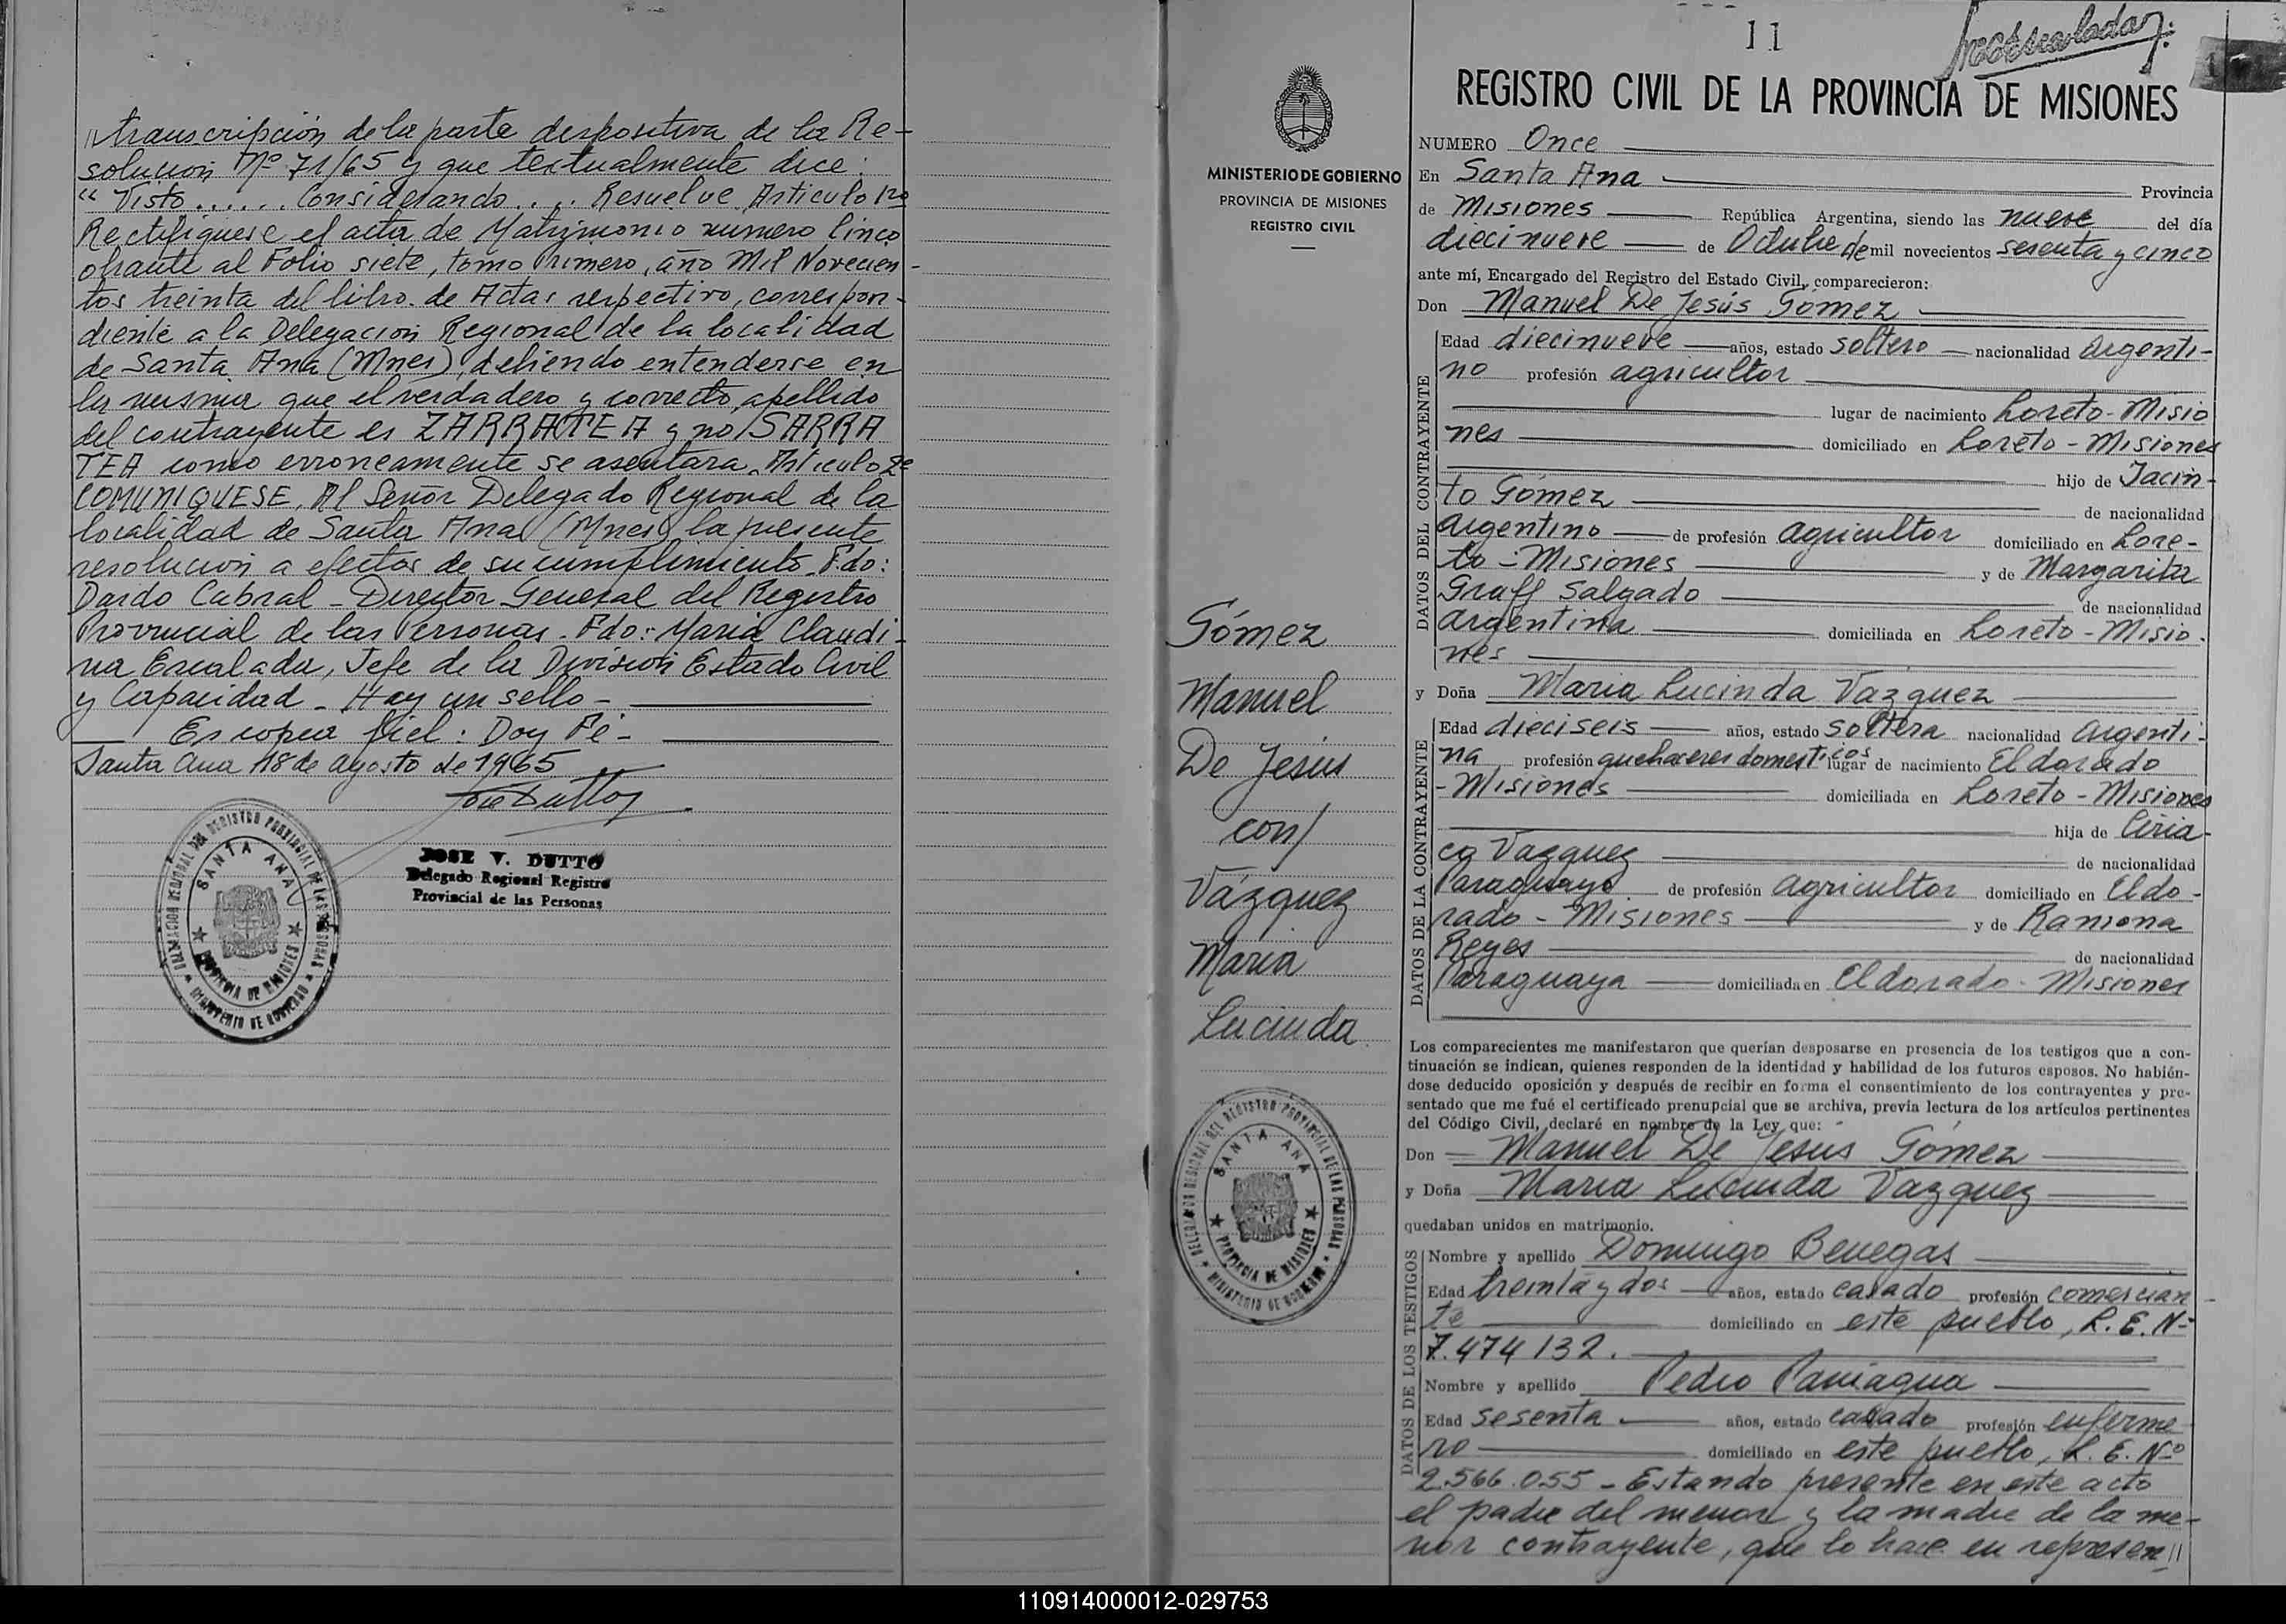 transcripción de la parte dispositiva de la Re-
solución Nº 71/65 y que textualmente dice:
"Visto...... Considerando.... Resuelve Articulo 1ro
Rectifiquese el acta de Matrimonio numero Cinco
obrante al Folio siete, tomo Primero, año Mil Novecien-
tos treinta del libro de Actas respectivo, correspon-
diente a la Delegacion Regional de la localidad
de Santa Ana (Mnes), debiendo entenderse en
la misma que el verdadero y correcto apellido
del contrayente es ZARRATEA y no SARRA
TEA como erroneamente se asentara. Articulo 2º
COMUNIQUESE, Al Señor Delegado Regional de la
localidad de Santa Ana (Mnes) la presente
resolucion a efectos de su cumplimiento. Fdo:
Dardo Cabral - Director General del Registro
Provincial de las Personas. Fdo: Maria Claudi-
na Escalada, Jefe de la División Estado Civil
y Capacidad - Hay un sello -
Es copia fiel: Doy Fé -
Santa Ana 18 de agosto de 1965
JOSE V. DUTTO
Delegado Regional Registro
Provincial de las Personas
DELEGACION REGIONAL DEL REGISTRO PROVINCIAL DE LAS PERSONAS
SANTA ANA
PROVINCIA DE MISIONES
MINISTERIO DE GOBIERNO
MINISTERIO DE GOBIERNO
PROVINCIA DE MISIONES
REGISTRO CIVIL
Gómez
Manuel
De Jesús
con/
Vázquez
Maria
Lucinda
DELEGACION REGIONAL DEL REGISTRO PROVINCIAL DE LAS PERSONAS
SANTA ANA
PROVINCIA DE MISIONES
MINISTERIO DE GOBIERNO
11
REGISTRO CIVIL DE LA PROVINCIA DE MISIONES
NUMERO Once
En Santa Ana Provincia
de Misiones República Argentina, siendo las nueve del día
diecinueve de Octubre de mil novecientos sesenta y cinco
ante mí, Encargado del Registro del Estado Civil, comparecieron:
Don Manuel De Jesús Gómez
DATOS DEL CONTRAYENTE
Edad diecinueve años, estado soltero nacionalidad argenti-
no profesión agricultor
lugar de nacimiento Loreto - Misio
nes domiciliado en Loreto - Misiones
hijo de Jacin-
to Gómez de nacionalidad
argentino de profesión agricultor domiciliado en Lore-
to - Misiones y de Margarita
Graff Salgado de nacionalidad
argentina domiciliada en Loreto - Misio-
nes
y Doña Maria Lucinda Vazquez
DATOS DE LA CONTRAYENTE
Edad dieciseis años, estado soltera nacionalidad argenti-
na profesión quehaceres domesticos lugar de nacimiento Eldorado
- Misiones domiciliada en Loreto - Misiones
hija de Ciria-
co Vazquez de nacionalidad
Paraguayo de profesión agricultor domiciliado en Eldo-
rado - Misiones y de Ramona
Reyes de nacionalidad
Paraguaya domiciliada en Eldorado - Misiones
Los comparecientes me manifestaron que querían desposarse en presencia de los testigos que a con-
tinuación se indican, quienes responden de la identidad y habilidad de los futuros esposos. No habién-
dose deducido oposición y después de recibir en forma el consentimiento de los contrayentes y pre-
sentado que me fué el certificado prenupcial que se archiva, previa lectura de los artículos pertinentes
del Código Civil, declaré en nombre de la Ley que:
Don Manuel De Jesús Gómez
y Doña Maria Lucinda Vazquez
quedaban unidos en matrimonio.
DATOS DE LOS TESTIGOS
Nombre y apellido Domingo Benegas
Edad treinta y dos años, estado casado profesión comercian-
te domiciliado en este pueblo, L. E. Nº
7.474132.
Nombre y apellido Pedro Paniagua
Edad sesenta años, estado casado profesión enferme
ro domiciliado en este pueblo, L. E. Nº
2.566.055 - Estando presente en este acto
el padre del menor y la madre de la me-
nor contrayente, que lo hace en represen//
110914000012-029753